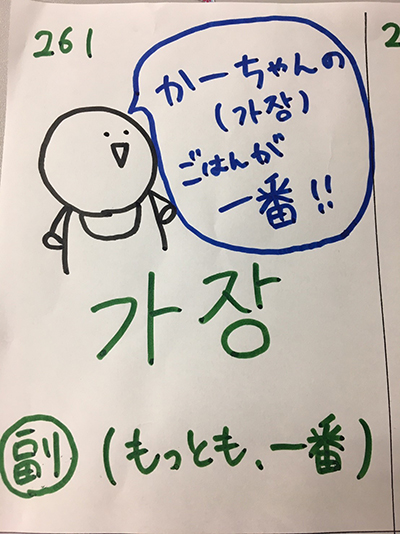 261
かーちゃんの
(가장)
ごはんが
一番!!
가장
副 (もっとも、一番)
2